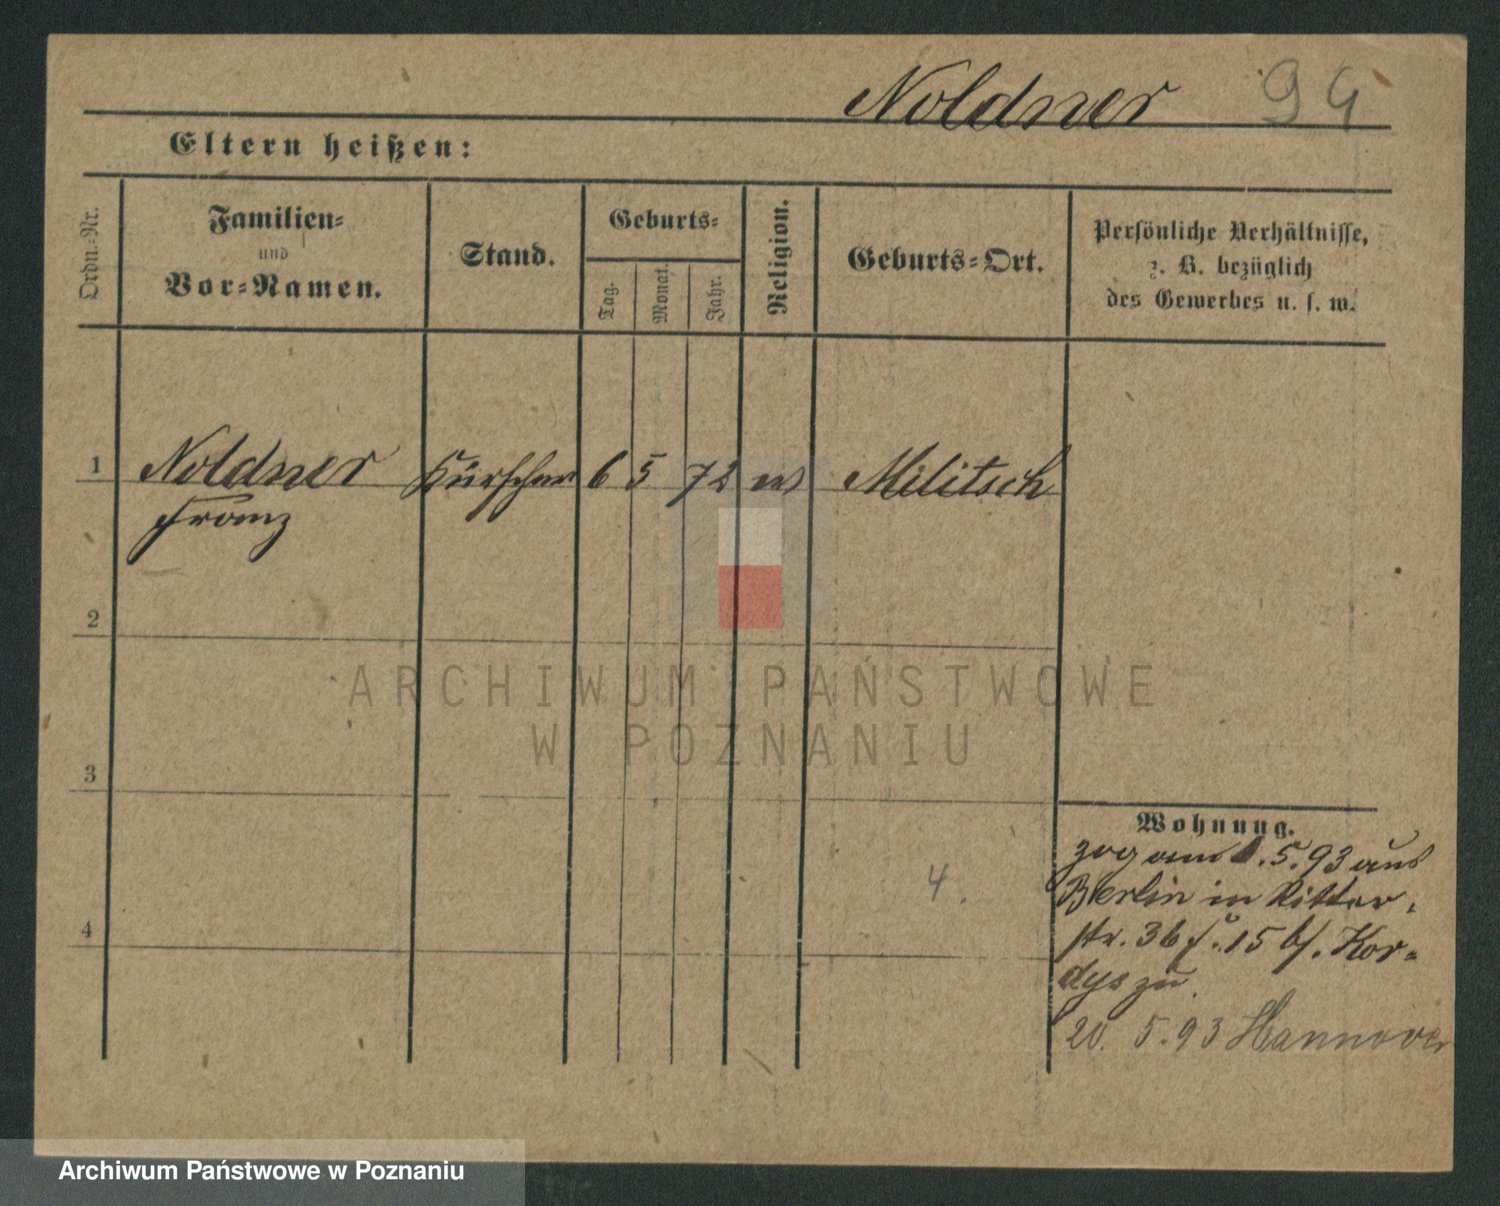 Noldner 94
Eltern heißen:
Ordn.-Nr.
Familien-
und
Vor-Namen.
Stand.
Geburts-
Tag.
Monat.
Jahr.
Religion.
Geburts-Ort.
Persönliche Verhältnisse,
z. B. bezüglich
des Gewerbes u. s. w.
1 Noldner Kürschner 6 5 72 Militsch
Franz
2
3
4
4.
Wohnung.
zog am .5.93 aus
Berlin in Ritter-
str. 36 15 b/. Kor-
dys zu.
20. 5. 93 Hannover
ARCHIWUM PAŃSTWOWE
W POZNANIU
Archiwum Państwowe w Poznaniu